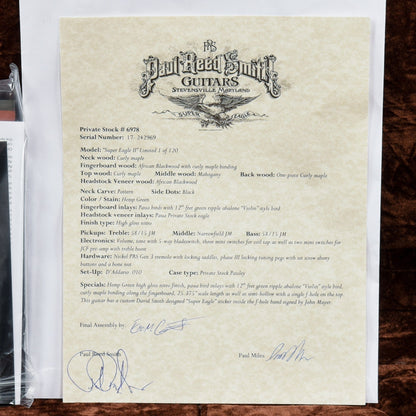 PRS
Paul Reed Smith
GUITARS
STEVENSVILLE MARYLAND
SUPER EAGLE
Private Stock # 6978
Serial Number: 17-242969
Model: "Super Eagle II" Limited 1 of 120
Neck wood: Curly maple
Fingerboard wood: African Blackwood with curly maple binding
Top wood: Curly maple Middle wood: Mahogany Back wood: One-piece Curly maple
Headstock Veneer wood: African Blackwood
Neck Carve: Pattern Side Birds: Black
Color / Stain: Hemp Green
Fingerboard inlays: Paua birds with 12th fret green ripple abalone "Violin" style bird
Headstock inlays: Paua Private Stock eagle
Finish type: High gloss nitro
Pickups: Treble: 58/15 JM Middle: Narrowfield JM Bass: 58/15 JM
Electronics: Volume, tone with 5-way bladeswitch, three mini switches for coil tap as well as two mini switches for
JCF pre-amp with treble boost
Hardware: Nickel PRS Gen 3 tremolo with locking saddles, phase III locking tuning pegs with
buttons and a bone nut
Set-Up: D'Addario .010 Case type: Private Stock Paisley
Specials: Hemp Green high gloss nitro finish, paua bird inlays with 12th fret green ripple abalone "Violin" style bird,
curly maple binding along the fingerboard, 25.375" scale length as well as semi-hollow with a single f hole on the top.
This guitar has a custom David Smith designed "Super Eagle" sticker inside the f-hole hand signed by John Mayer.
Final Assembly by:
Paul Reed Smith Paul Miles